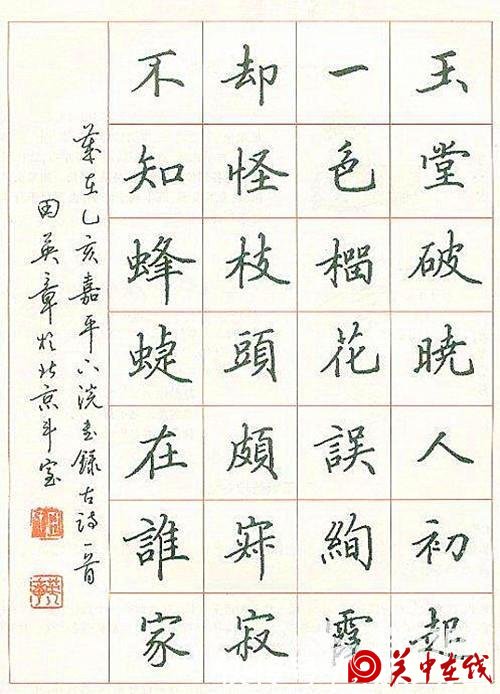 玉堂破曉人初起
一色榴花誤絢霞
却怪枝頭頗寂
不知蜂蜨在誰家
歲在乙亥嘉平下浣書錄古詩一首
田英章於北京斗室
关中在线